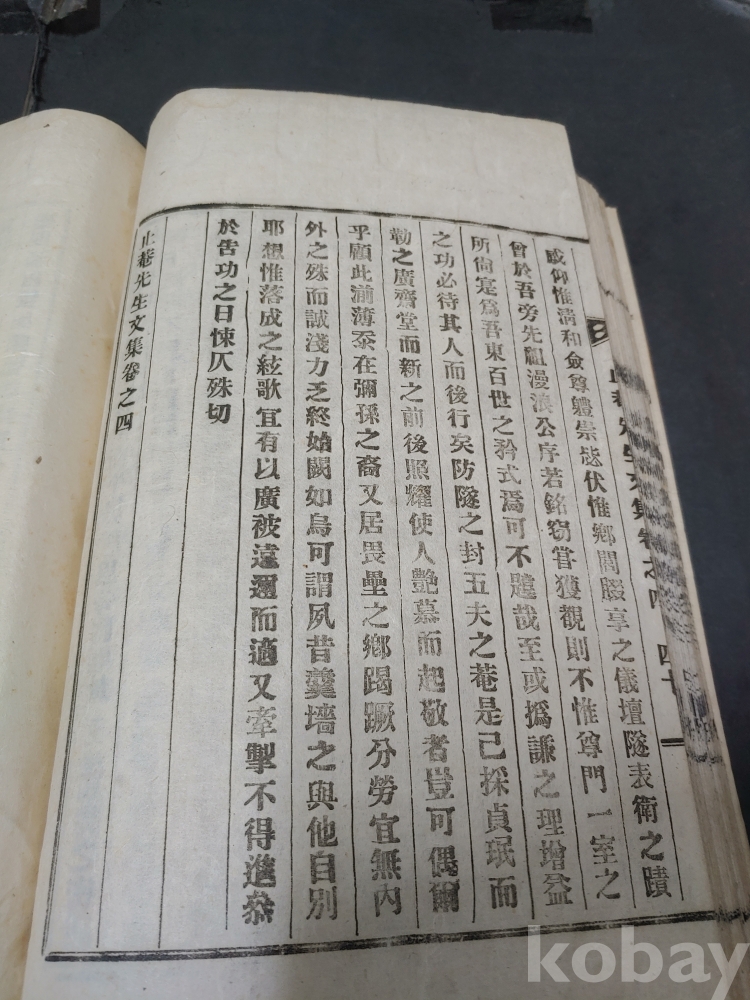 止菴先生文集卷之四 四十
或仰惟淸和僉尊軆崇毖伏惟鄕閭腏享之儀壇隧表衛之蹟
曾於吾旁先祖漫浪公序若銘竊甞獲觀則不惟尊門一室之
所尙寔爲吾東百世之矜式焉可不韙哉至或撝謙之理增益
之功必待其人而後行矣防隧之封五夫之菴是已採貞珉而
勒之廣齋堂而新之前後照耀使人艶慕而起敬者豈可偶爾
乎顧此湔薄忝在彌孫之裔又居畏壘之鄕蹋蹶分勞宜無內
外之殊而誠淺力乏終始闕如烏可謂夙昔羹墻之與他自別
耶想惟落成之絃歌宜有以廣被遠邇而適又牽掣不得進叅
於告功之日悚仄殊切
止菴先生文集卷之四
kobay